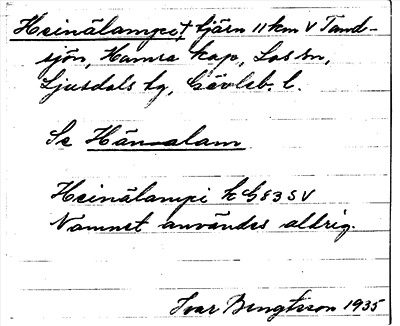 Heinälampi, tjärn 11 km V Tand-
sjön, Hamra kap, Los sn,
Ljusdals tg, Gävleb. l.
Se Hän-alam
Heinälampi k G83 SV
Namnet användes aldrig.
Ivar Bengtsson 1935